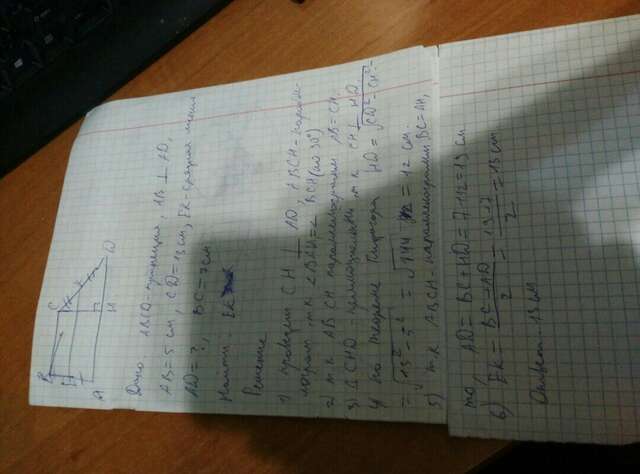 B C
E K
A H D
Дано: ABCD - трапеция, AB ⊥ AD,
AB = 5 см, CD = 13 см, EK - средняя линия
AD = ?, BC = 7 см
Найти: EK
Решение
1) проведем CH ⊥ AD, ABCH - паралле-
лограм, т.к ∠BAH = ∠BCH (по 90°)
2) т.к ABCH параллелограмм AB = CH
3) Δ CHD - прямоугольный, т.к CH ⊥ HD
4) по теореме Пифагора HD = √CD² - CH² =
= √13² - 5² = √144 = 12 см
5) т.к ABCH - параллелограмм, BC = AH,
то, AD = BC + HD = 7 + 12 = 19 см
6) EK = BC + AD / 2 = 19 + 7 / 2 = 13 см
Ответ 13 см